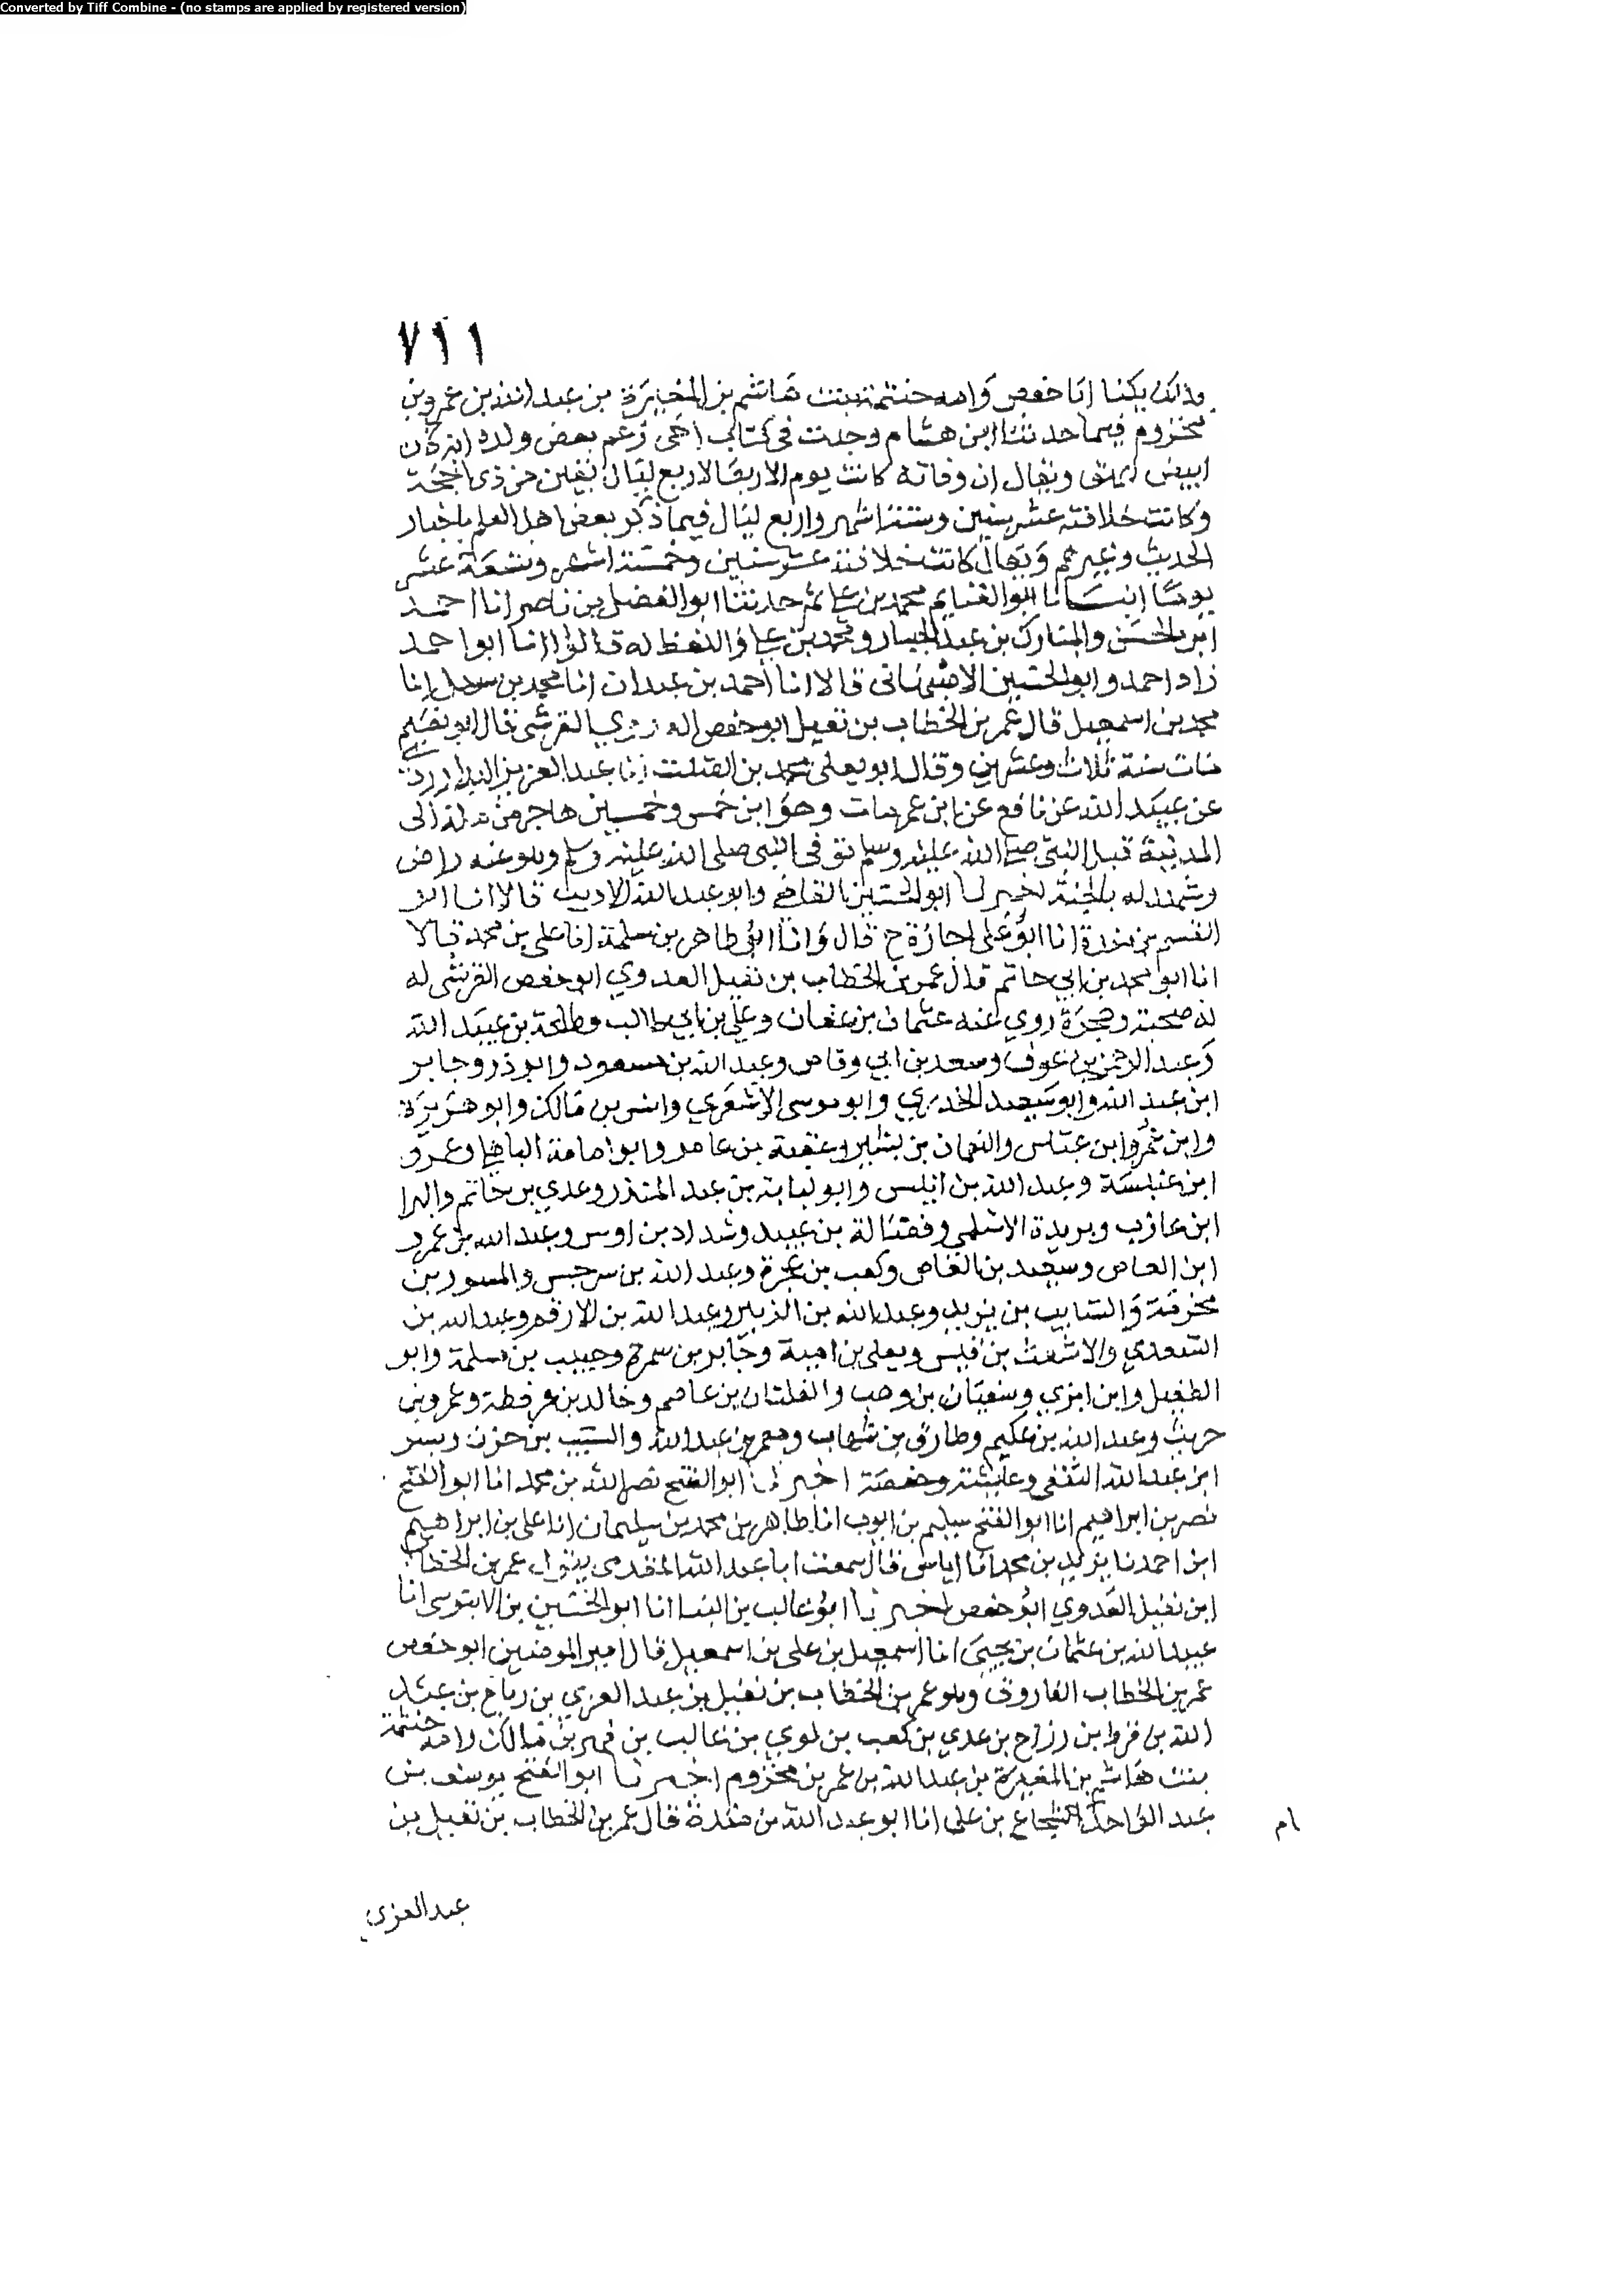 Converted by Tiff Combine - (no stamps are applied by registered version)
٧١١
مالك يكنا ابا حفص وامه حنتمة بنت هاشم بن المغيرة بن عبد الله بن عمرو بن
مخزوم فيما حدثنا ابن هشام وجدت في كتاب زعم بعض ولده انه كان
ابيض امهق ويقال ان وفاته كانت يوم الاربعا لاربع ليال بقين من ذي الحجة
وكانت خلافته عشر سنين وستة اشهر واربع ليال فيما ذكر بعض اهل العلم باخبار
الحديث وغيرهم ويقال كانت خلافته عشر سنين وخمسة اشهر وتسعة عشر
يوما انبانا ابو الغنايم محمد بن علي ثم حدثنا ابو الفضل بن ناصر انا احمد
ابن الحسن والمبارك بن عبد الجبار ومحمد بن علي واللفظ له قالوا انا ابو احمد
زاد احمد وابو الحسين الاصبهاني قالا انا احمد بن عبدان انا محمد بن سهل انا
محمد بن اسمعيل قال عمر بن الخطاب بن نفيل ابو حفص العدوي القرشي قال ابو نعيم
مات سنة ثلاث وعشرين وقال ابو يعلى محمد بن الصلت نا عبد العزيز الدراوردي
عن عبيد الله عن نافع عن ابن عمر مات وهو ابن خمس وخمسين هاجر من مكة الى
المدينة قبل النبي صلى الله عليه وسلم توفي النبي صلى الله عليه وسلم وهو عنه راض
وشهد له بالجنة اخبرنا ابو الحسين القاضي وابو عبد الله الاديب قالا انا ابو
القسم بن مندة انا ابو علي اجازة ح قال وانا ابو طاهر بن سلمة انا علي بن محمد قالا
انا ابو محمد بن ابي حاتم قال عمر بن الخطاب بن نفيل العدوي ابو حفص القرشي له
له صحبة وهجرة روي عنه عثمان بن عفان وعلي بن ابي طالب وطلحة بن عبيد الله
وعبد الرحمن بن عوف وسعد بن ابي وقاص وعبد الله بن مسعود وابو ذر وجابر
ابن عبد الله وابو سعيد الخدري وابو موسى الاشعري وانس بن مالك وابو هريرة
وابن عمر وابن عباس والنعمان بن بشير وعقبة بن عامر وابو امامة الباهلي وعمرو
ابن عنبسة وعبد الله بن انيس وابو لبابة بن عبد المنذر وعدي بن حاتم والبرا
ابن عازب وبريدة الاسلمي وفضالة بن عبيد وشداد بن اوس وعبد الله بن عمرو
ابن العاص وسعيد بن العاص وكعب بن عجرة وعبد الله بن سرجس والمسور بن
مخرمة والسايب بن يزيد وعبد الله بن الزبير وعبد الله بن الارقم وعبد الله بن
السعدي والاشعث بن قيس ويعلى بن امية وجابر بن سمرة وحبيب بن مسلمة وابو
الطفيل وابن ابزي وسفيان بن وهب والفلتان بن عاصم وخالد بن عرفطة وعمرو بن
حريث وعبد الله بن عكيم وطارق بن شهاب ومعمر بن عبد الله والمسيب بن حزن وبسر
ابن عبد الله الثقفي وعايشة وحفصة اخبرنا ابو الفتح نصر الله بن محمد انا ابو الفتح
نصر بن ابراهيم انا ابو الفتح سليم بن ايوب انا طاهر بن محمد بن سليمان انا علي بن ابراهيم
ابن احمد نا يزيد بن محمد انا اياس قال سمعت ابا عبد الله المقدمي يقول عمر بن الخطاب
ابن نفيل العدوي ابو حفص اخبرنا ابو غالب بن البنا انا ابو الحسين بن الابنوسي انا
عبيد الله بن عثمان بن يحيى انا اسمعيل بن علي بن اسمعيل قال امير المومنين ابو حفص
عمر بن الخطاب الفاروق وهو عمر بن الخطاب بن نفيل بن عبد العزي بن رياح بن عبد
الله بن قرط بن رزاح بن عدي بن كعب بن لوي بن غالب بن فهر بن مالك وامه حنتمة
بنت هاشم بن المغيرة بن عبد الله بن عمر بن مخزوم اخبرنا ابو الفتح يوسف بن
عبد الواحد انا شجاع بن علي انا ابو عبد الله بن مندة قال عمر بن الخطاب بن نفيل بن
عبد العزي